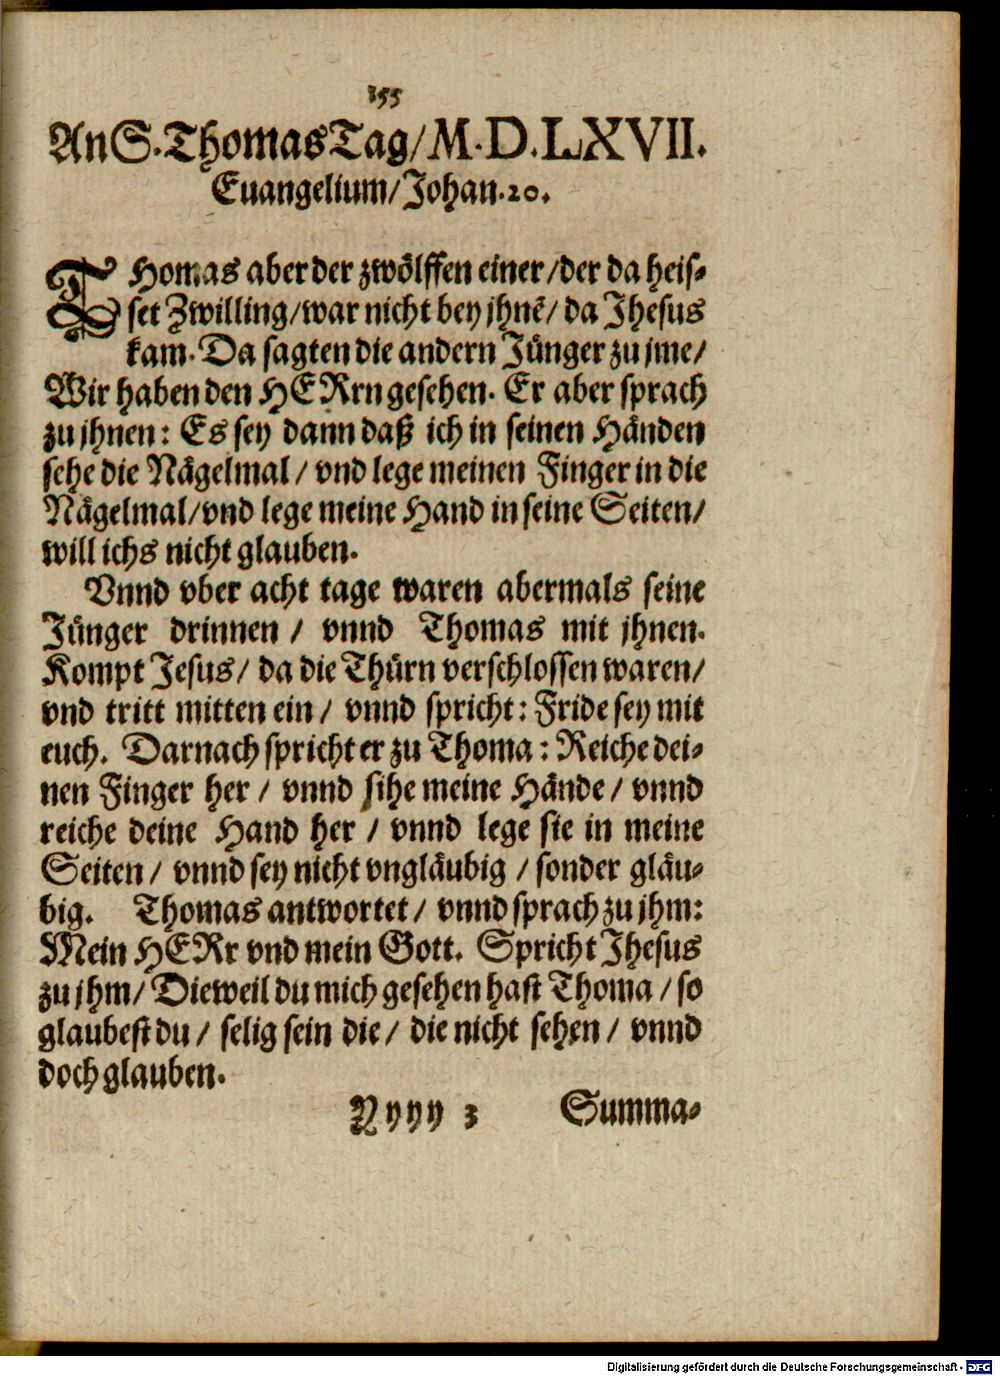 355
An S. Thomas Tag/ M.D.LXVII.
Euangelium/ Johan. 20.
THomas aber der zwölffen einer/ der da heis-
set Zwilling/ war nicht bey jhnẽ/ da Jhesus
kam. Da sagten die andern Jünger zu jme/
Wir haben den HERrn gesehen. Er aber sprach
zu jhnen: Es sey dann daß ich in seinen Händen
sehe die Nägelmal/ vnd lege meinen Finger in die
Nägelmal/ vnd lege meine Hand in seine Seiten/
will ichs nicht glauben.
Vnnd vber acht tage waren abermals seine
Jünger drinnen/ vnnd Thomas mit jhnen.
Kompt Jesus/ da die Thürn verschlossen waren/
vnd tritt mitten ein/ vnnd spricht: Fride sey mit
euch. Darnach spricht er zu Thoma: Reiche dei-
nen Finger her/ vnnd sihe meine Hände/ vnnd
reiche deine Hand her/ vnnd lege sie in meine
Seiten/ vnnd sey nicht vngläubig/ sonder gläu-
big. Thomas antwortet/ vnnd sprach zu jhm:
Mein HERr vnd mein Gott. Spricht Jhesus
zu jhm/ Dieweil du mich gesehen hast Thoma/ so
glaubest du/ selig sein die/ die nicht sehen/ vnnd
doch glauben.
Yyyy 3 Summa-
Digitalisierung gefördert durch die Deutsche Forschungsgemeinschaft - DFG